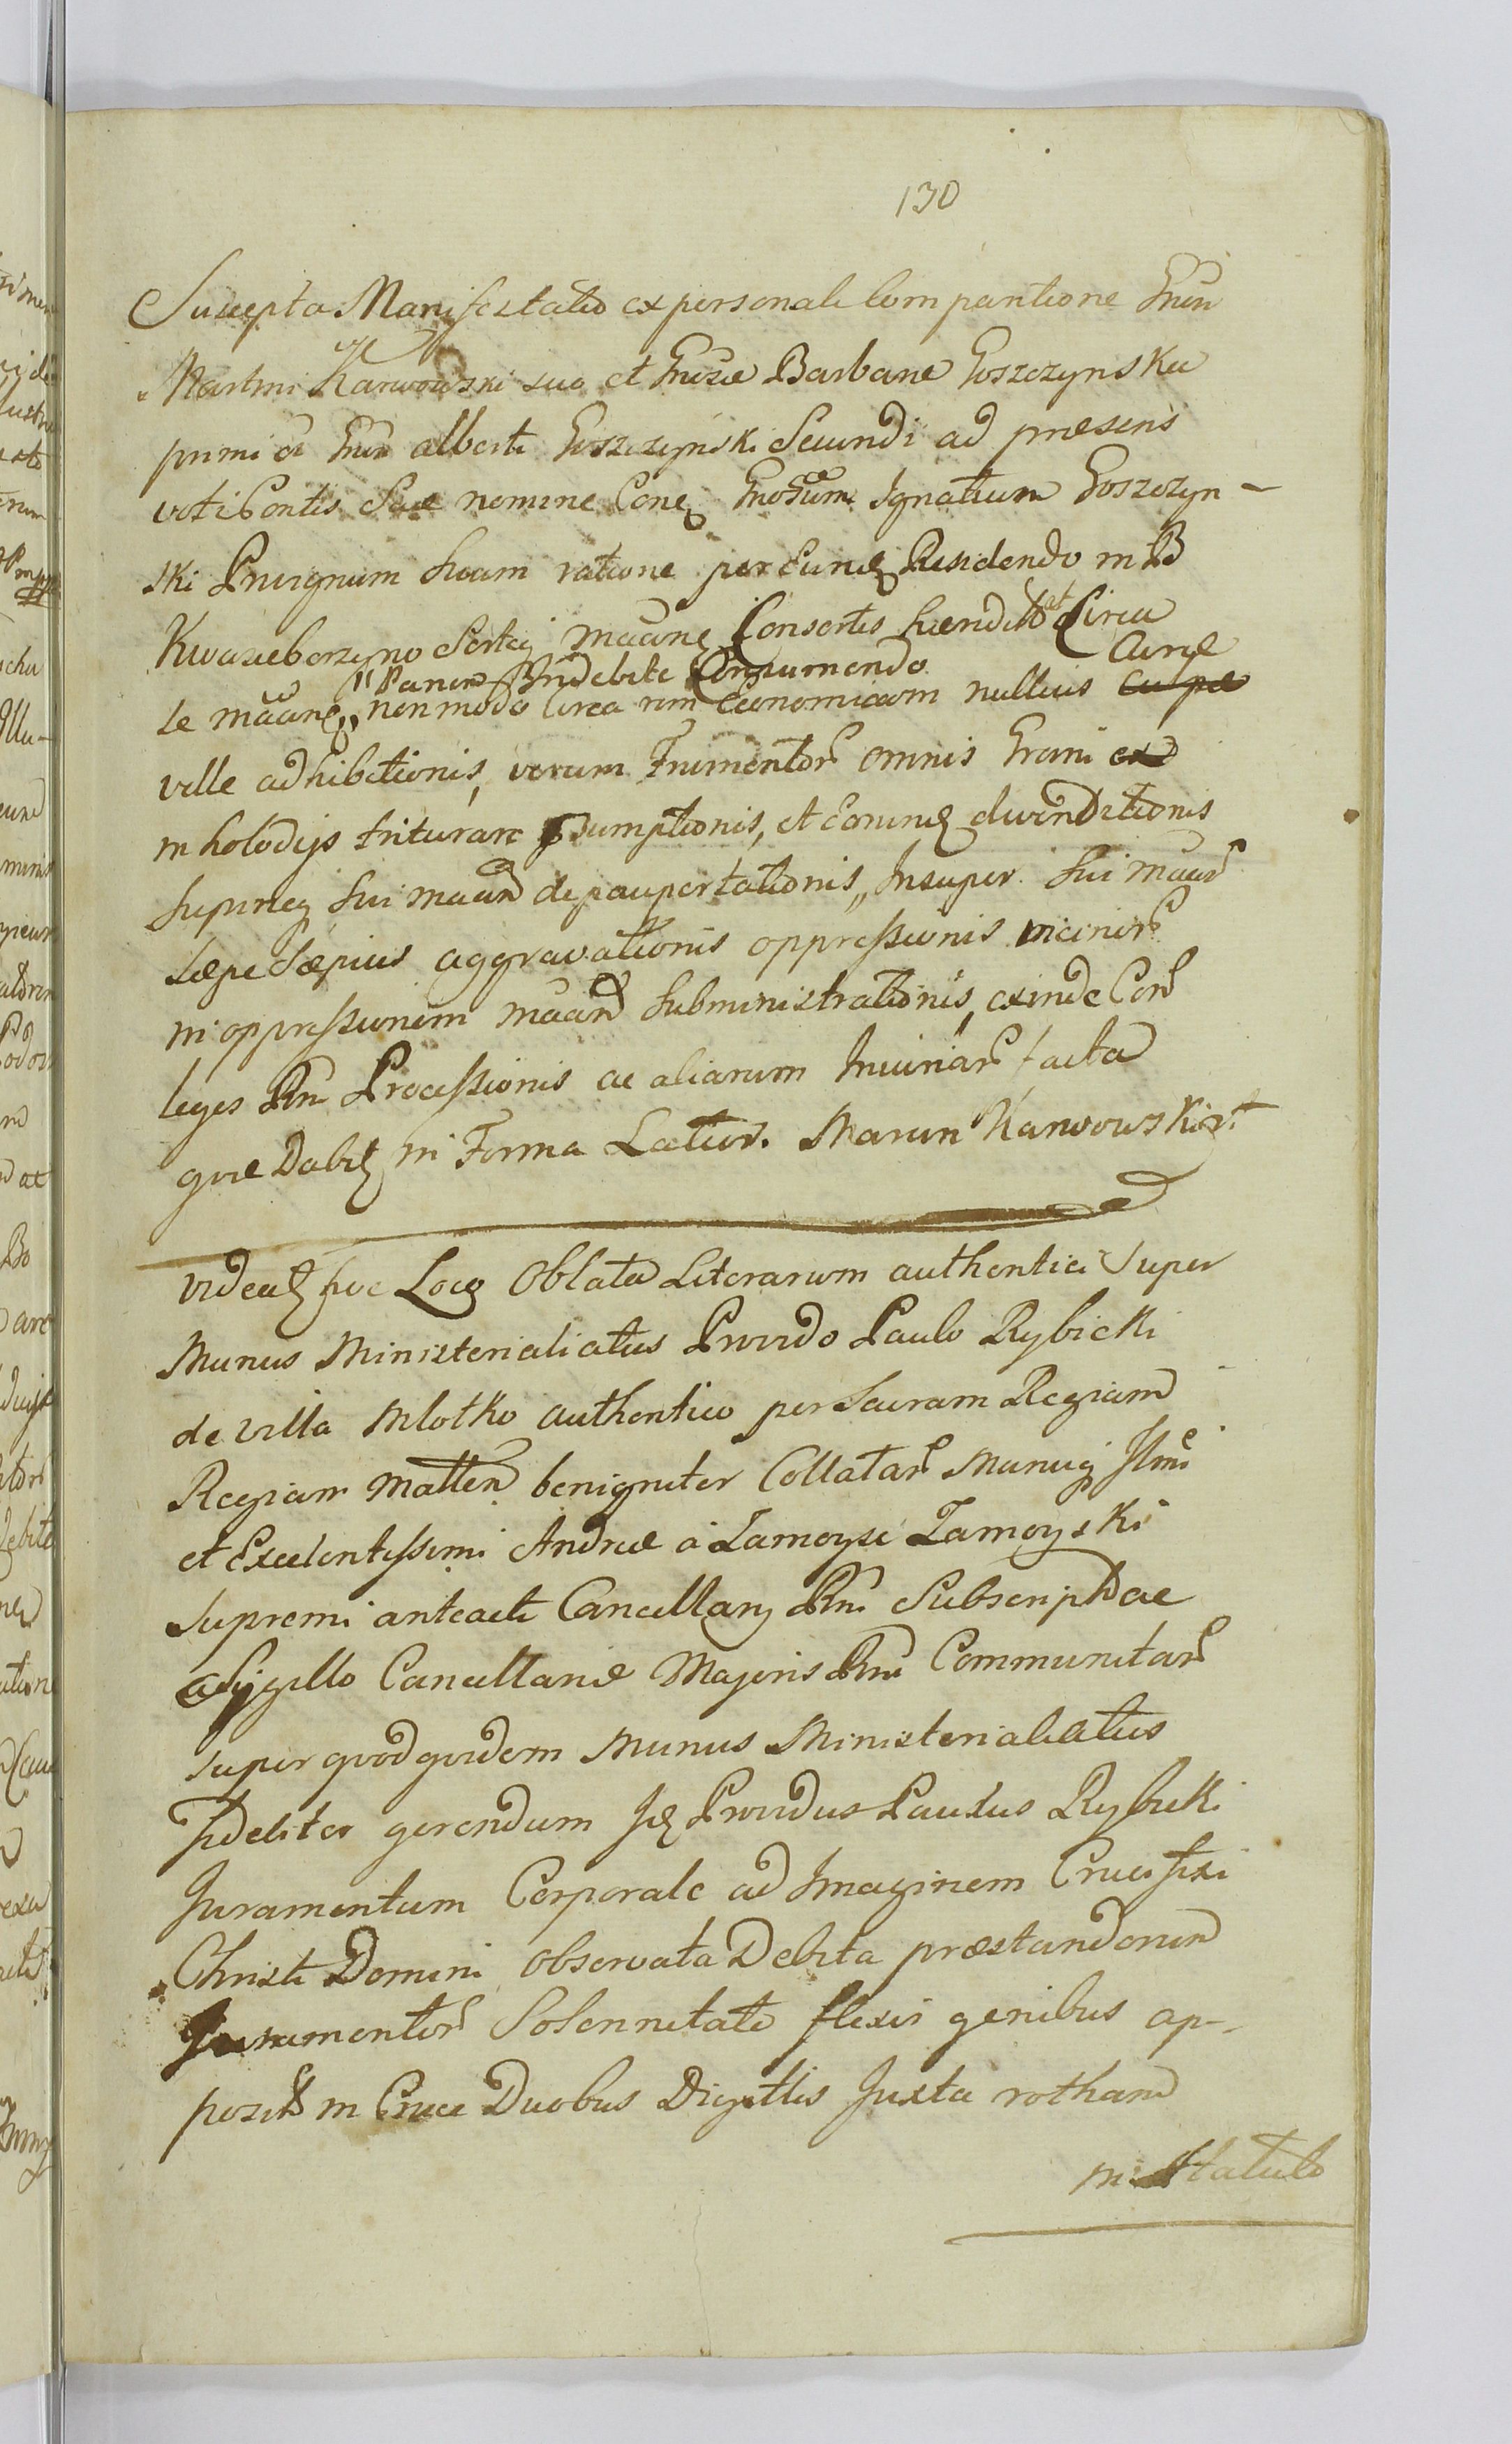 130
Suscepta Manifestatio ex personali Comparitione Gnsi
Martini Karwowski suo et Gnosae Barbarae Goszczynska
primi et Gnsi Alberti Goszczynski Secundi ad praesens
voti Contis Suae nomine Conq Gnosum Ignatium Goszczyn-
ski Privignum Suam ratione per Eundq Residendo in B
Kwasieborzyno Sortq Maanq Consortis haendit et Circa
"Panem Indebite Consumendo Curae
se maanq, non modo Circa rem Economicam nullius culpae
vel adhibitionis, verum Frumentor omnis Grani ex
in holodijs triturari sumptionis, et eorumq divenditionis
Superneq Sui maan depauperationis, Insuper Sui maan
saepe Saepius aggravationis oppressionis vicinior
in oppressionem maan Subministrationis, exinde Con
leges Rni Processionis ac aliarum Iniuriar facta
quae Dabitq in Forma Latior. Marcin Karwowski
Videatq hoc Loco Oblata Literarum authentici Super
Munus Ministerialiatus Provido Paulo Rybicki
de Villa Mlotko authentico per Sacram Regiam
Regiam Mattem benigniter Collatar Manuq Illmi
et Excelentissimi Andreae a Zamoysc Zamoyski
Supremi anteacti Cancellarij Rni Subscript ac
a Sigillo Cancellariae Majoris Rni Communitar
super quod quidem Munus Ministerialiatus
Fideliter gerendum Idq Providus Paulus Rybicki
Juramentum Corporale ad Imaginem Crucifixi
Christi Domini observata Debita praestandorum
Juramentor Solennitate flexis genibus ap-
positis in Cruce Duobus Digitis Juxta rotham
in Statuto